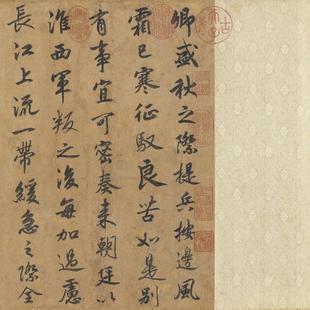 卿盛秋之際提兵按邊風
霜已寒征馭良苦如是別
有事宜可密奏来朝廷以
淮西軍叛之後每加過慮
長江上流一帶緩急之際全